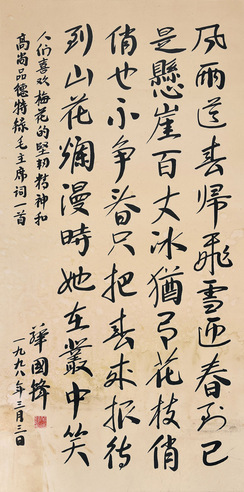 风雨送春歸飛雪迎春到已
是懸崖百丈冰猶有花枝俏
俏也不争春只把春来报待
到山花爛漫時她在叢中笑
人们喜欢梅花的坚韧精神和
高尚品德特録毛主席词一首
國鋒
一九九八年三月三日